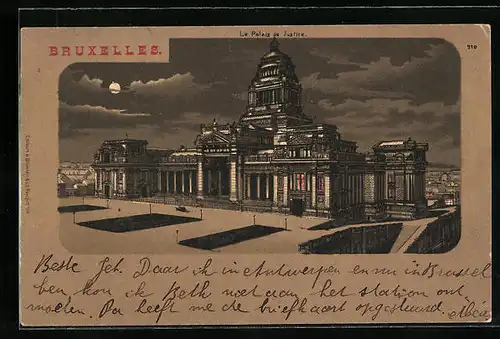 Le Palais de Justice.
BRUXELLES.
210
Beste Jet. Daar ik in Antwerpen en nu in Brussel
ben kon ik Beth niet aan het station ont
moeten. Pa heeft me de briefkaart opgestuurd.